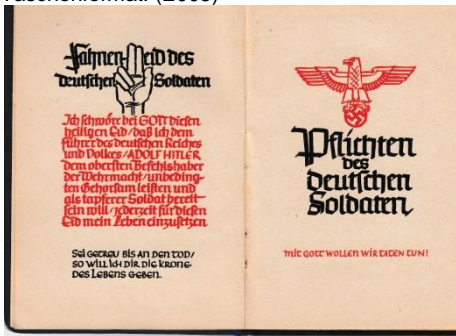 Taschenformat. (2005)
Fahneneid des
deutschen Soldaten
Ich schwöre bei GOTT diesen
heiligen Eid/daß ich dem
Führer des deutschen Reiches
und Volkes/ADOLF HITLER
dem obersten Befehlshaber
der Wehrmacht/unbeding-
ten Gehorsam leisten und
als tapferer Soldat bereit
sein will/jederzeit für diesen
Eid mein Leben einzusetzen
Sei getreu bis an den Tod/
so will ich dir die Krone
des Lebens geben.
Pflichten
des
deutschen
Soldaten
mit Gott wollen wir Taten tun!